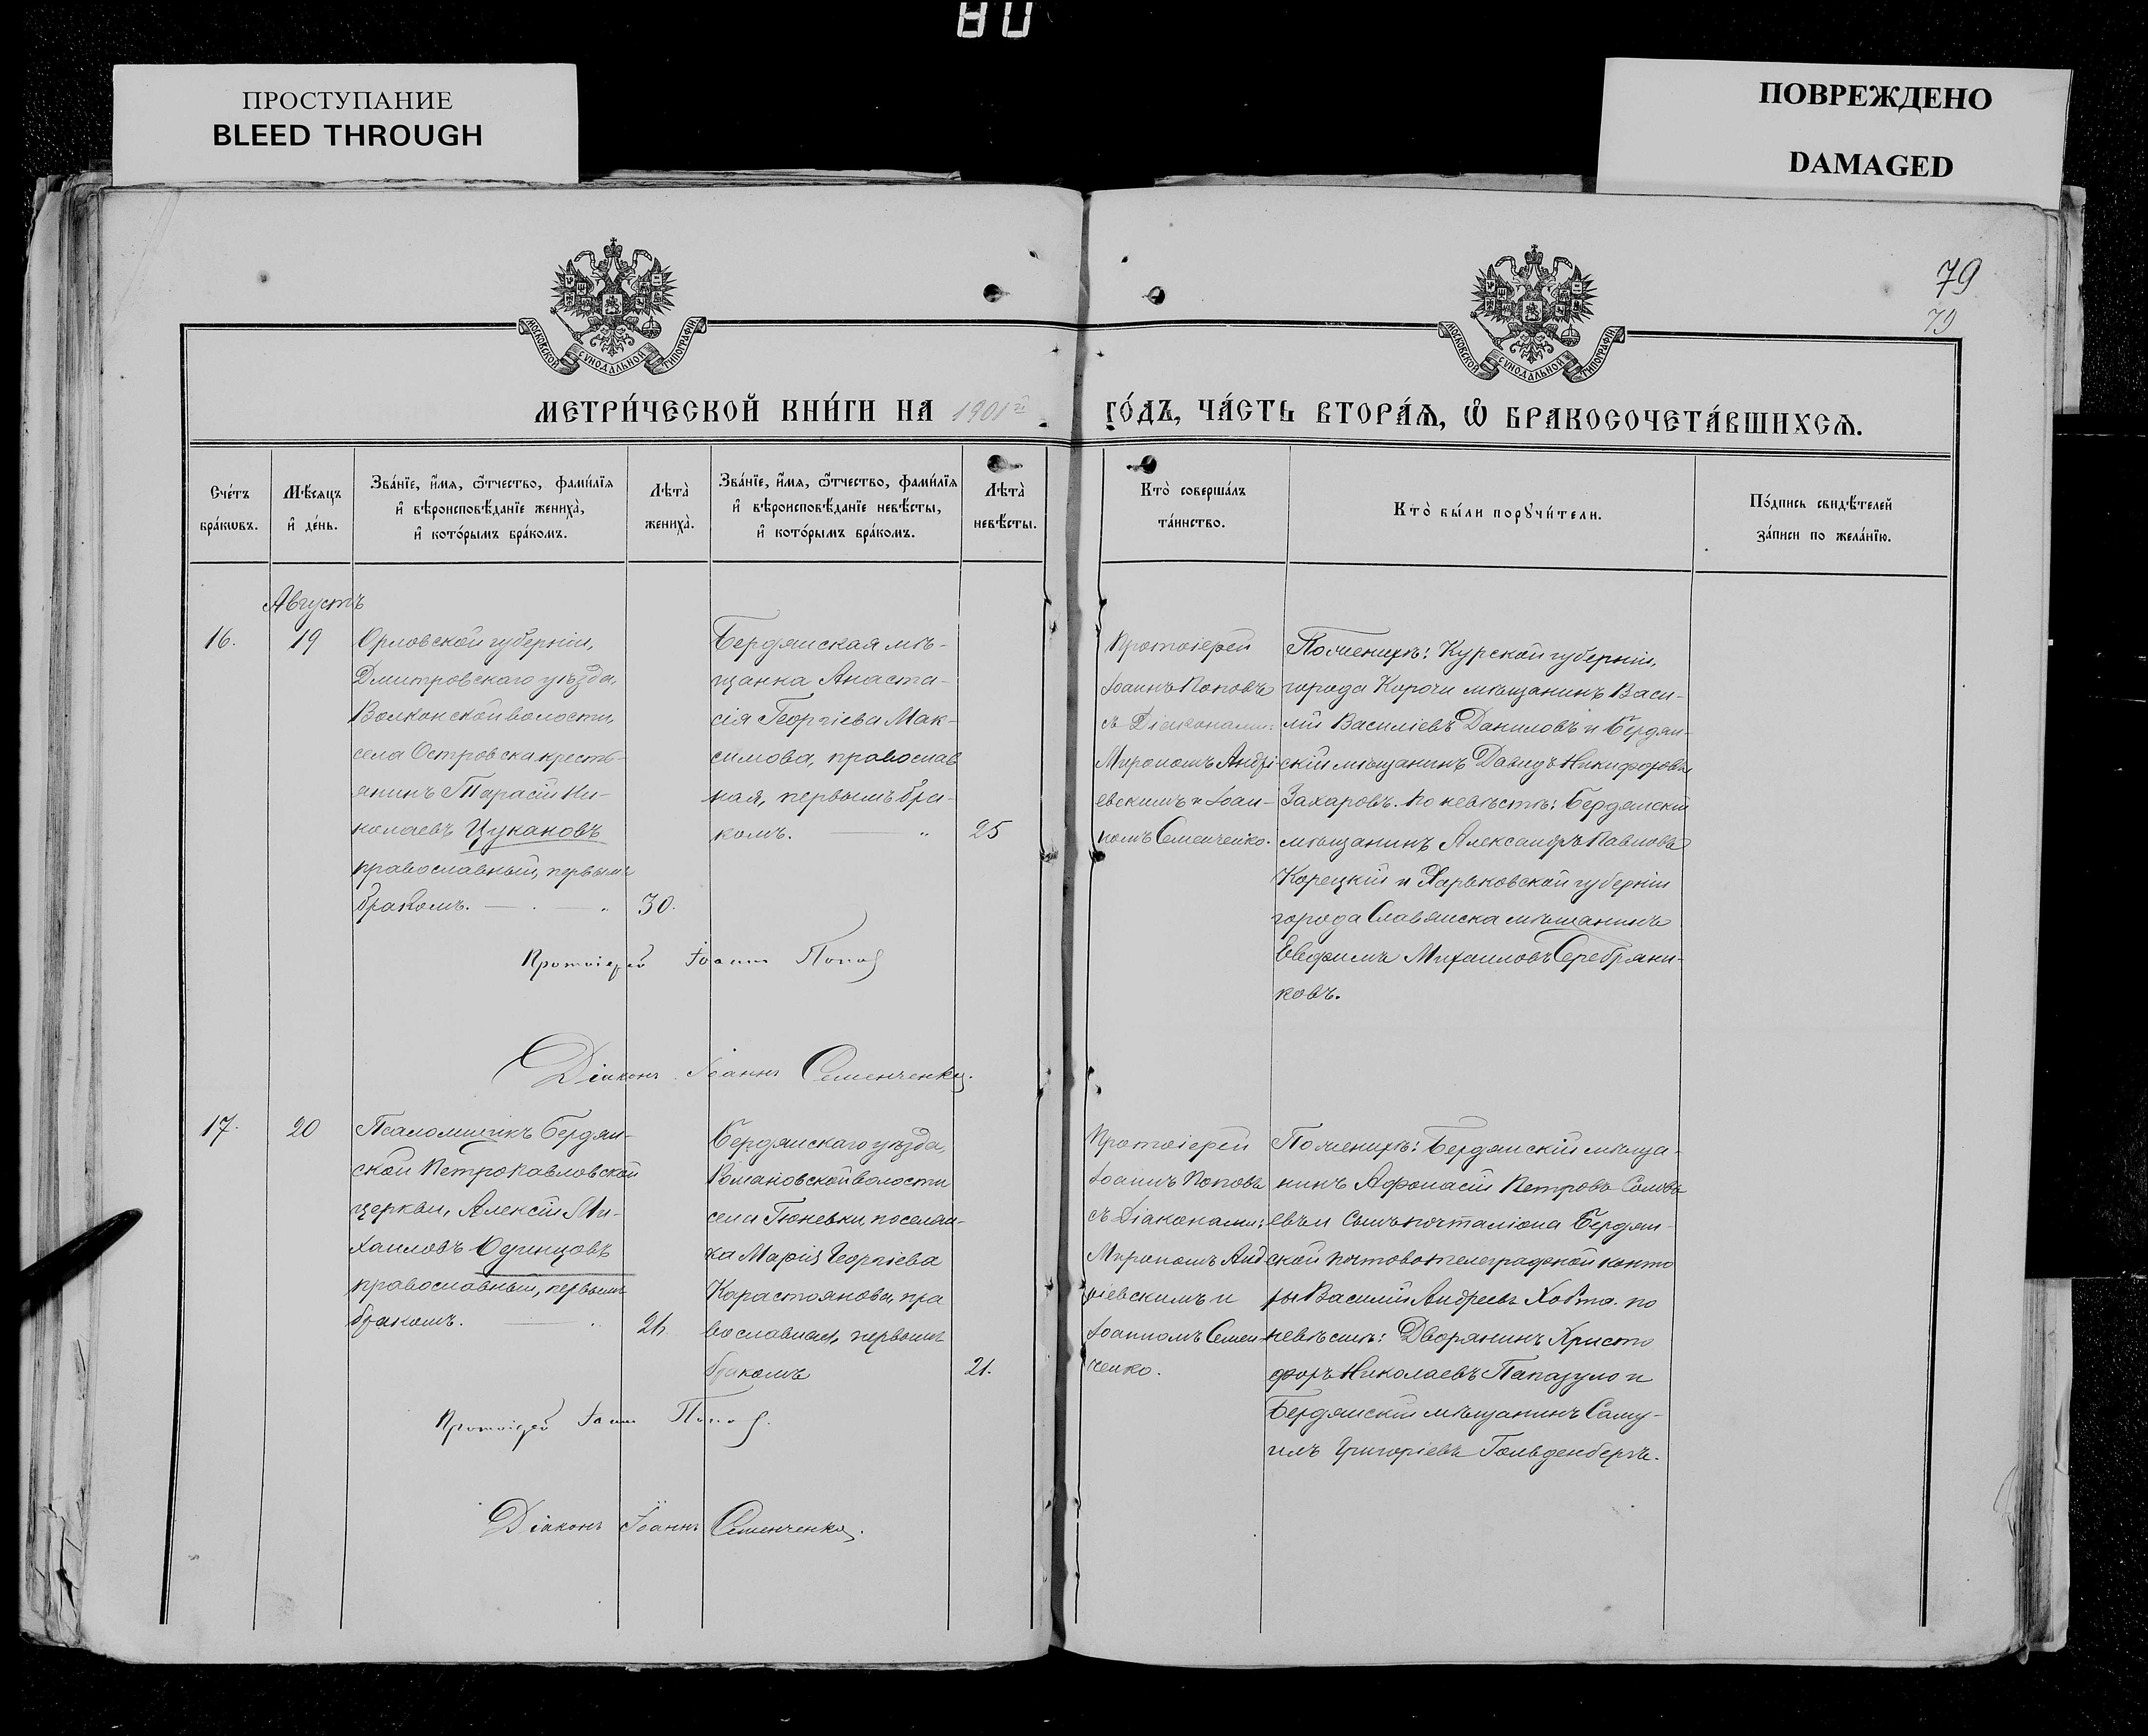 80
ПРОСТУПАНИЕ
BLEED THROUGH
ПОВРЕЖДЕНО
DAMAGED
79
79
МОСКОВСКОЙ СѴНОДАЛЬНОЙ ТИПОГРАФІИ
МОСКОВСКОЙ СѴНОДАЛЬНОЙ ТИПОГРАФІИ
МЕТРИ́ЧЕСКОЙ КНИ́ГИ НА 1901й
ГО́ДЪ, ЧА́СТЬ ВТОРА́Ѧ, Ѡ҆ БРАКОСОЧЕТА́ВШИХСѦ.
Сче́тъ
бра́кѡвъ.
Мѣ́сѧцъ
и҆ де́нь.
Зва́нїе, и҆́мѧ, ѻ҆́тчество, фами́лїѧ
и҆ вѣроисповѣ́данїе жениха̀,
и҆ кото́рымъ бра́комъ.
Лѣта̀
жениха̀.
Зва́нїе, и҆́мѧ, ѻ҆́тчество, фами́лїѧ
и҆ вѣроисповѣ́данїе невѣ́сты,
и҆ кото́рымъ бра́комъ.
Лѣта̀
невѣ́сты.
Кто̀ соверша́лъ
та́инство.
Кто̀ бы́ли порꙋчи́тели.
По́дпись свидѣ́телей
за́писи по жела́нїю.
Августъ
16.
19
Орловской губерніи,
Дмитровскаго уѣзда,
Волконской волости,
села Островска кресть-
янинъ Тарасій Ни-
колаевъ Цукановъ
православный, первымъ
бракомъ.
30.
Бердянская мѣ-
щанка Анаста-
сія Георгіева Мак-
симова, православ
ная, первымъ бра-
комъ.
25
Протоіерей
Іоаннъ Поповъ
съ Діаконами:
Мирономъ Андрі-
евскимъ и Іоан-
номъ Семенченко.
По женихѣ: Курской губерніи,
города Корочи мѣщанинъ Васи-
лій Василіевъ Даниловъ и Бердян-
скій мѣщанинъ Давидъ Никифоровъ
Захаровъ. По невѣстѣ: Бердянскій
мѣщанинъ Александръ Павловъ
Корецкій и Харьковской губерніи
города Славянска мѣщанинъ
Евфимъ Михаиловъ Серебрянн-
ковъ.
Протоіерей Іоаннъ Поповъ
Діаконъ Іоаннъ Семенченко.
17.
20
Псаломщикъ Бердян-
ской Петропавловской
церкви, Алексій Ми-
хаиловъ Одинцовъ
православный, первымъ
бракомъ.
Бердянскаго уѣзда,
Романовской волости
села Гюневки, поселян-
ка Марія Георгіева
Карастоянова, пра
вославная, первымъ
бракомъ
21.
Протоіерей
Іоаннъ Поповъ
съ Діаконами:
Мирономъ Анд
ріевскимъ и
Іоанномъ Семен
ченко.
По женихѣ: Бердянскій мѣща-
нинъ Афонасій Петровъ Соловь
евъ и сынъ почталіона Бердян-
ской почтово телеграфной конто
ры Василій Андреевъ по
невѣстѣ: Дворянинъ Христо
форъ Николаевъ Папазуло и
Бердянскій мѣщанинъ Саму-
илъ Григоріевъ Гольденбергъ.
Протоіерей Іоаннъ Поповъ.
Діаконъ Іоаннъ Семенченко.